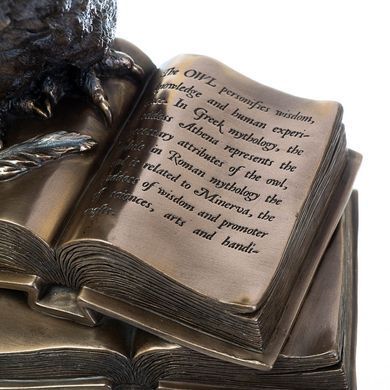 The OWL personifies wisdom,
knowledge and human experi-
In Greek mythology, the
Athena represents the
attributes of the owl,
in Roman mythology the
is related to Minerva, the
of wisdom and promoter
sciences, arts and handi-